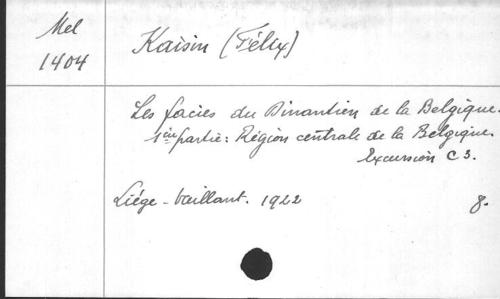 Mel
1404
Kaisin (Félix)
Les facies du Dinantien de la Belgique.
1ère partie: Région centrale de la Belgique.
Excursion C3.
Liége - Vaillant. 1922
8.